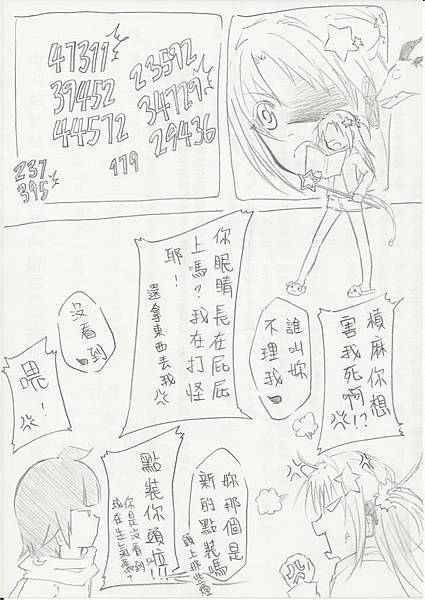 47311
39452
44572
23592
34729
29436
237
395
179
槓麻你想
害我死啊!?
誰叫妳
不理我
你眼睛長在屁屁
上嗎?我在打怪
耶!
還拿東西丟我
沒看到
喂!
妳那個是
新的點裝嗎
頭上那些
點裝你頭啦!!!
你是沒看到
我在生氣嗎?